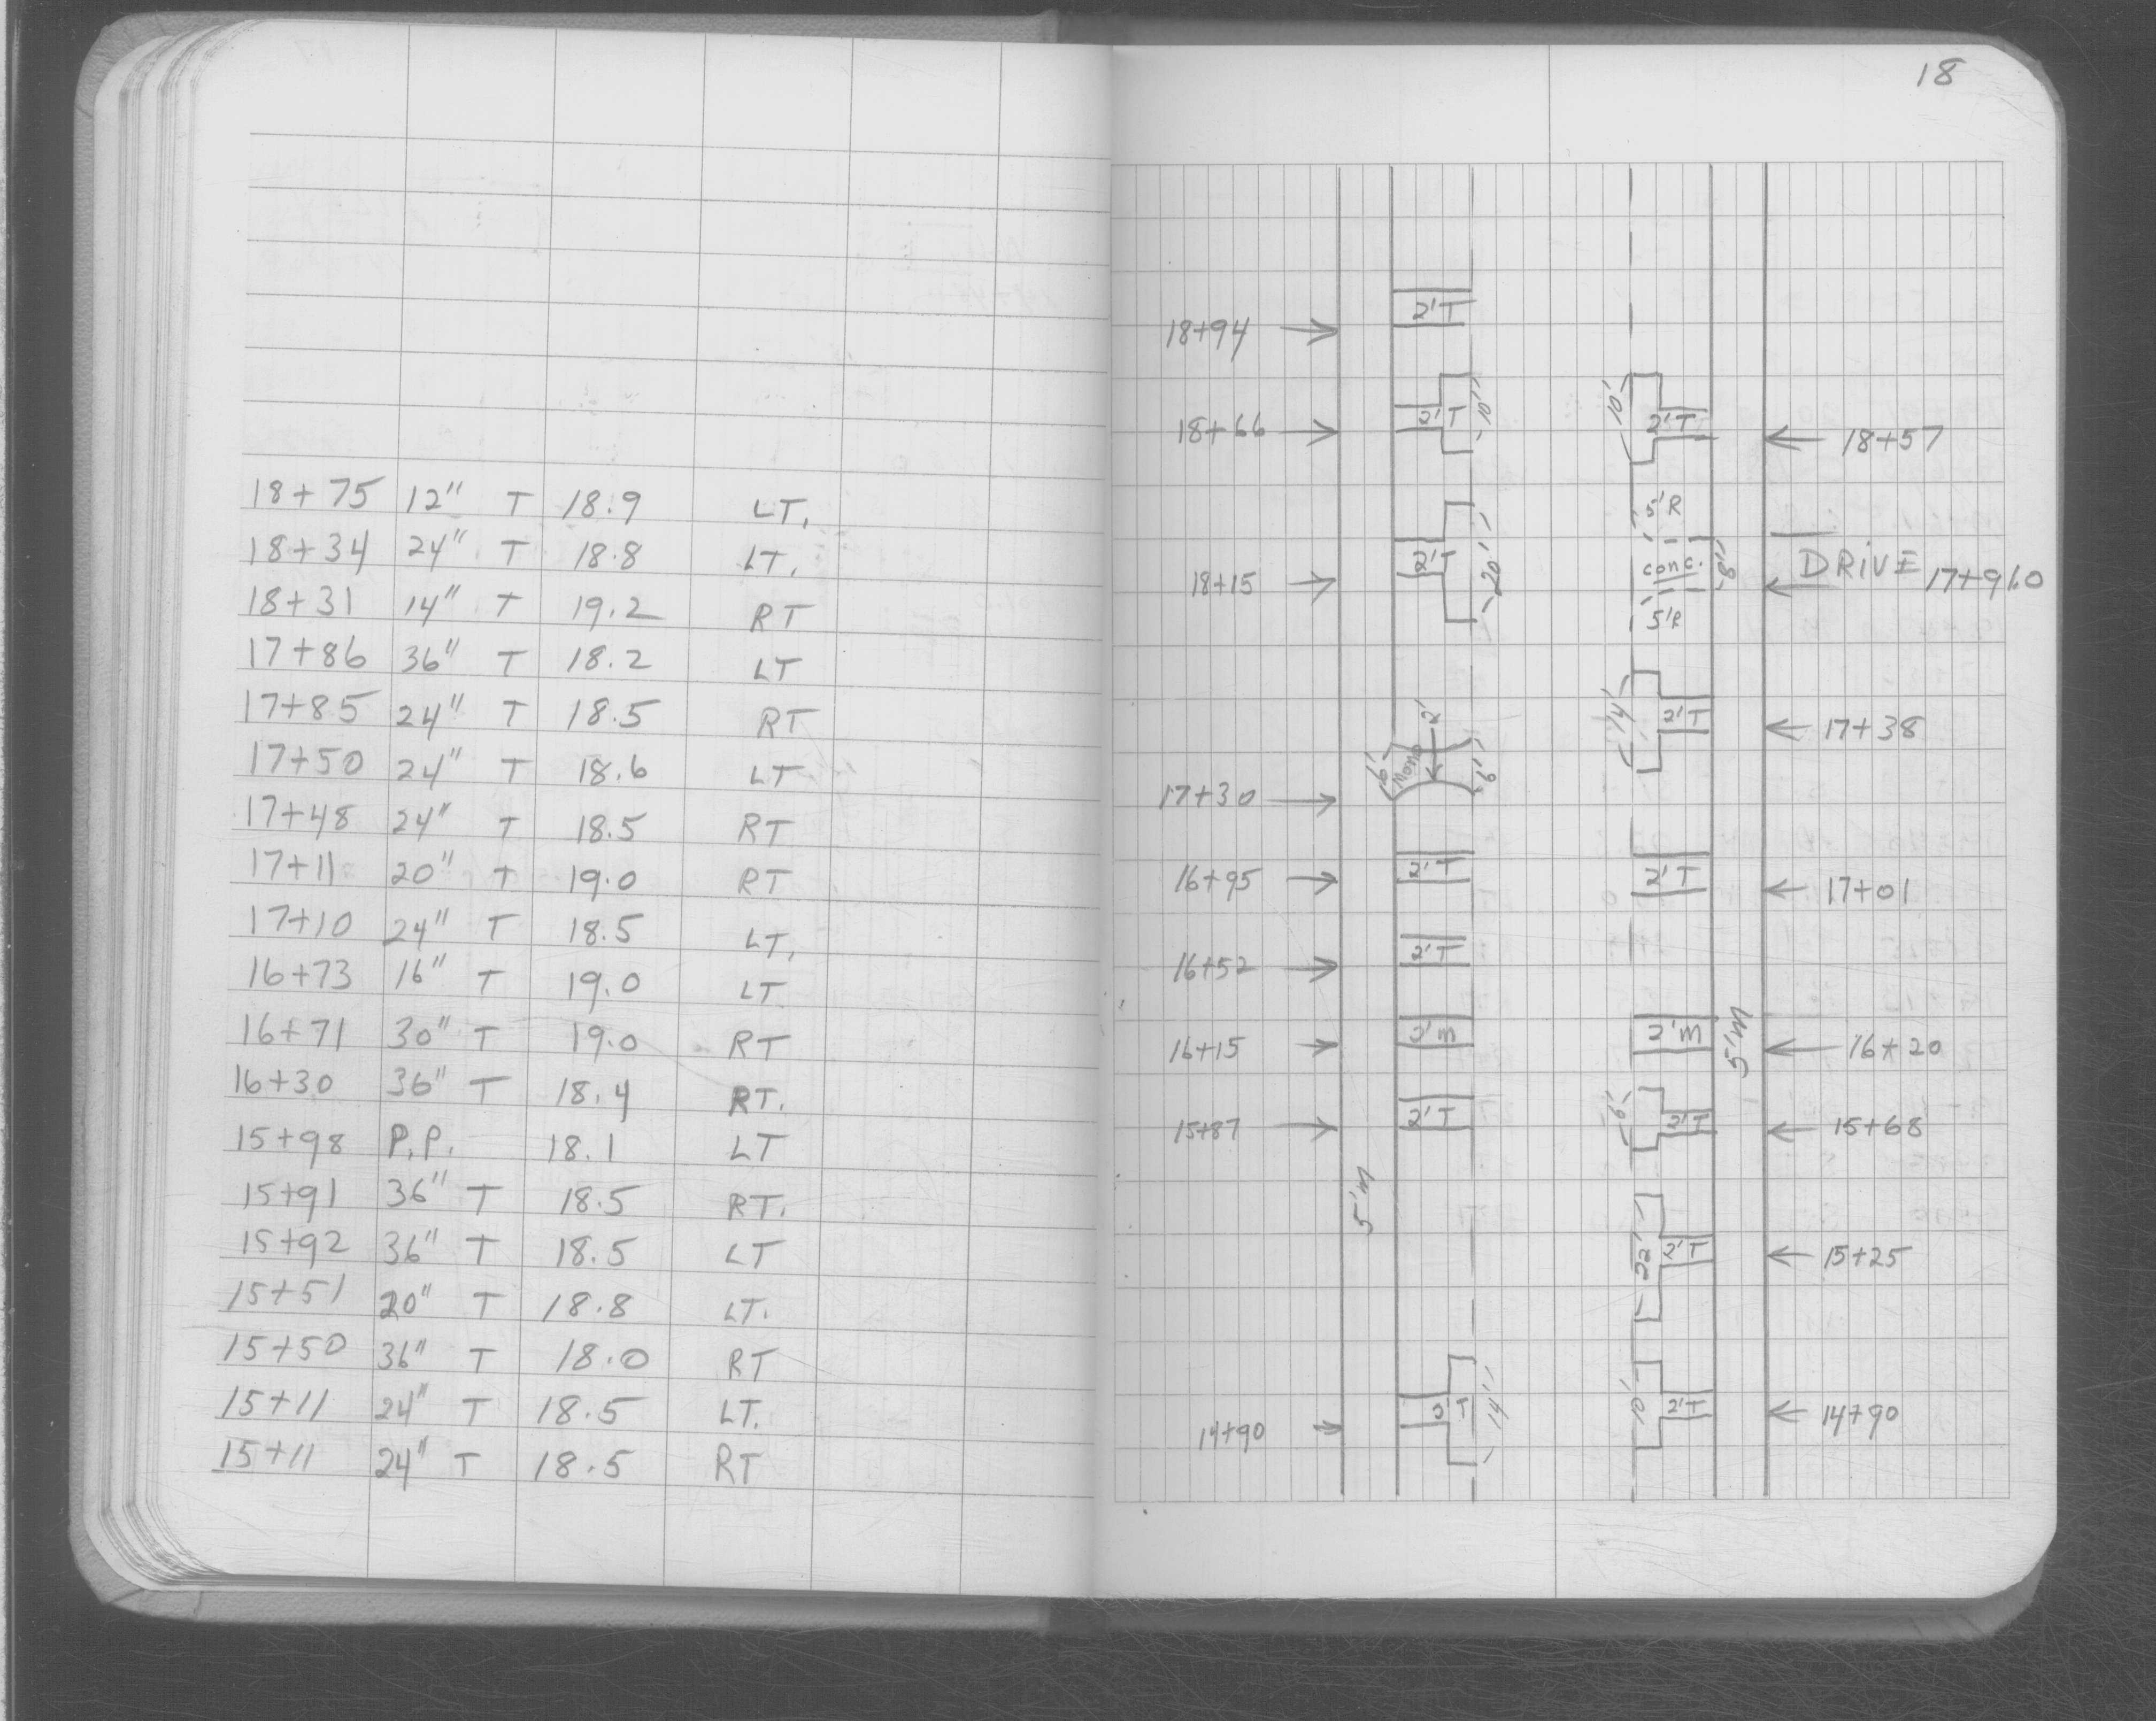 18+75 12" T 18.9 LT.
18+34 24" T 18.8 LT.
18+31 14" T 19.2 RT
17+86 36" T 18.2 LT
17+85 24" T 18.5 RT
17+50 24" T 18.6 LT
17+48 24" T 18.5 RT
17+11 20" T 19.0 RT
17+10 24" T 18.5 LT.
16+73 16" T 19.0 LT
16+71 30" T 19.0 RT
16+30 36" T 18.4 RT.
15+98 P.P. 18.1 LT
15+91 36" T 18.5 RT.
15+92 36" T 18.5 LT
15+51 20" T 18.8 LT.
15+50 36" T 18.0 RT
15+11 24" T 18.5 LT.
15+11 24" T 18.5 RT
18
18+94 2'T
18+66 2'T 10' 10' 2'T 18+57
5'R
18+15 2'T 20' conc. 8' DRIVE 17+96.0
5'R
14' 2'T 17+38
17+30 6' Mono 2' 6'
16+95 2'T 2'T 17+01
16+52 2'T
16+15 2'M 2'M 5'M 16+20
15+87 2'T 6' 2'T 15+68
5'M
22' 2'T 15+25
14+90 2'T 14' 10' 2'T 14+90